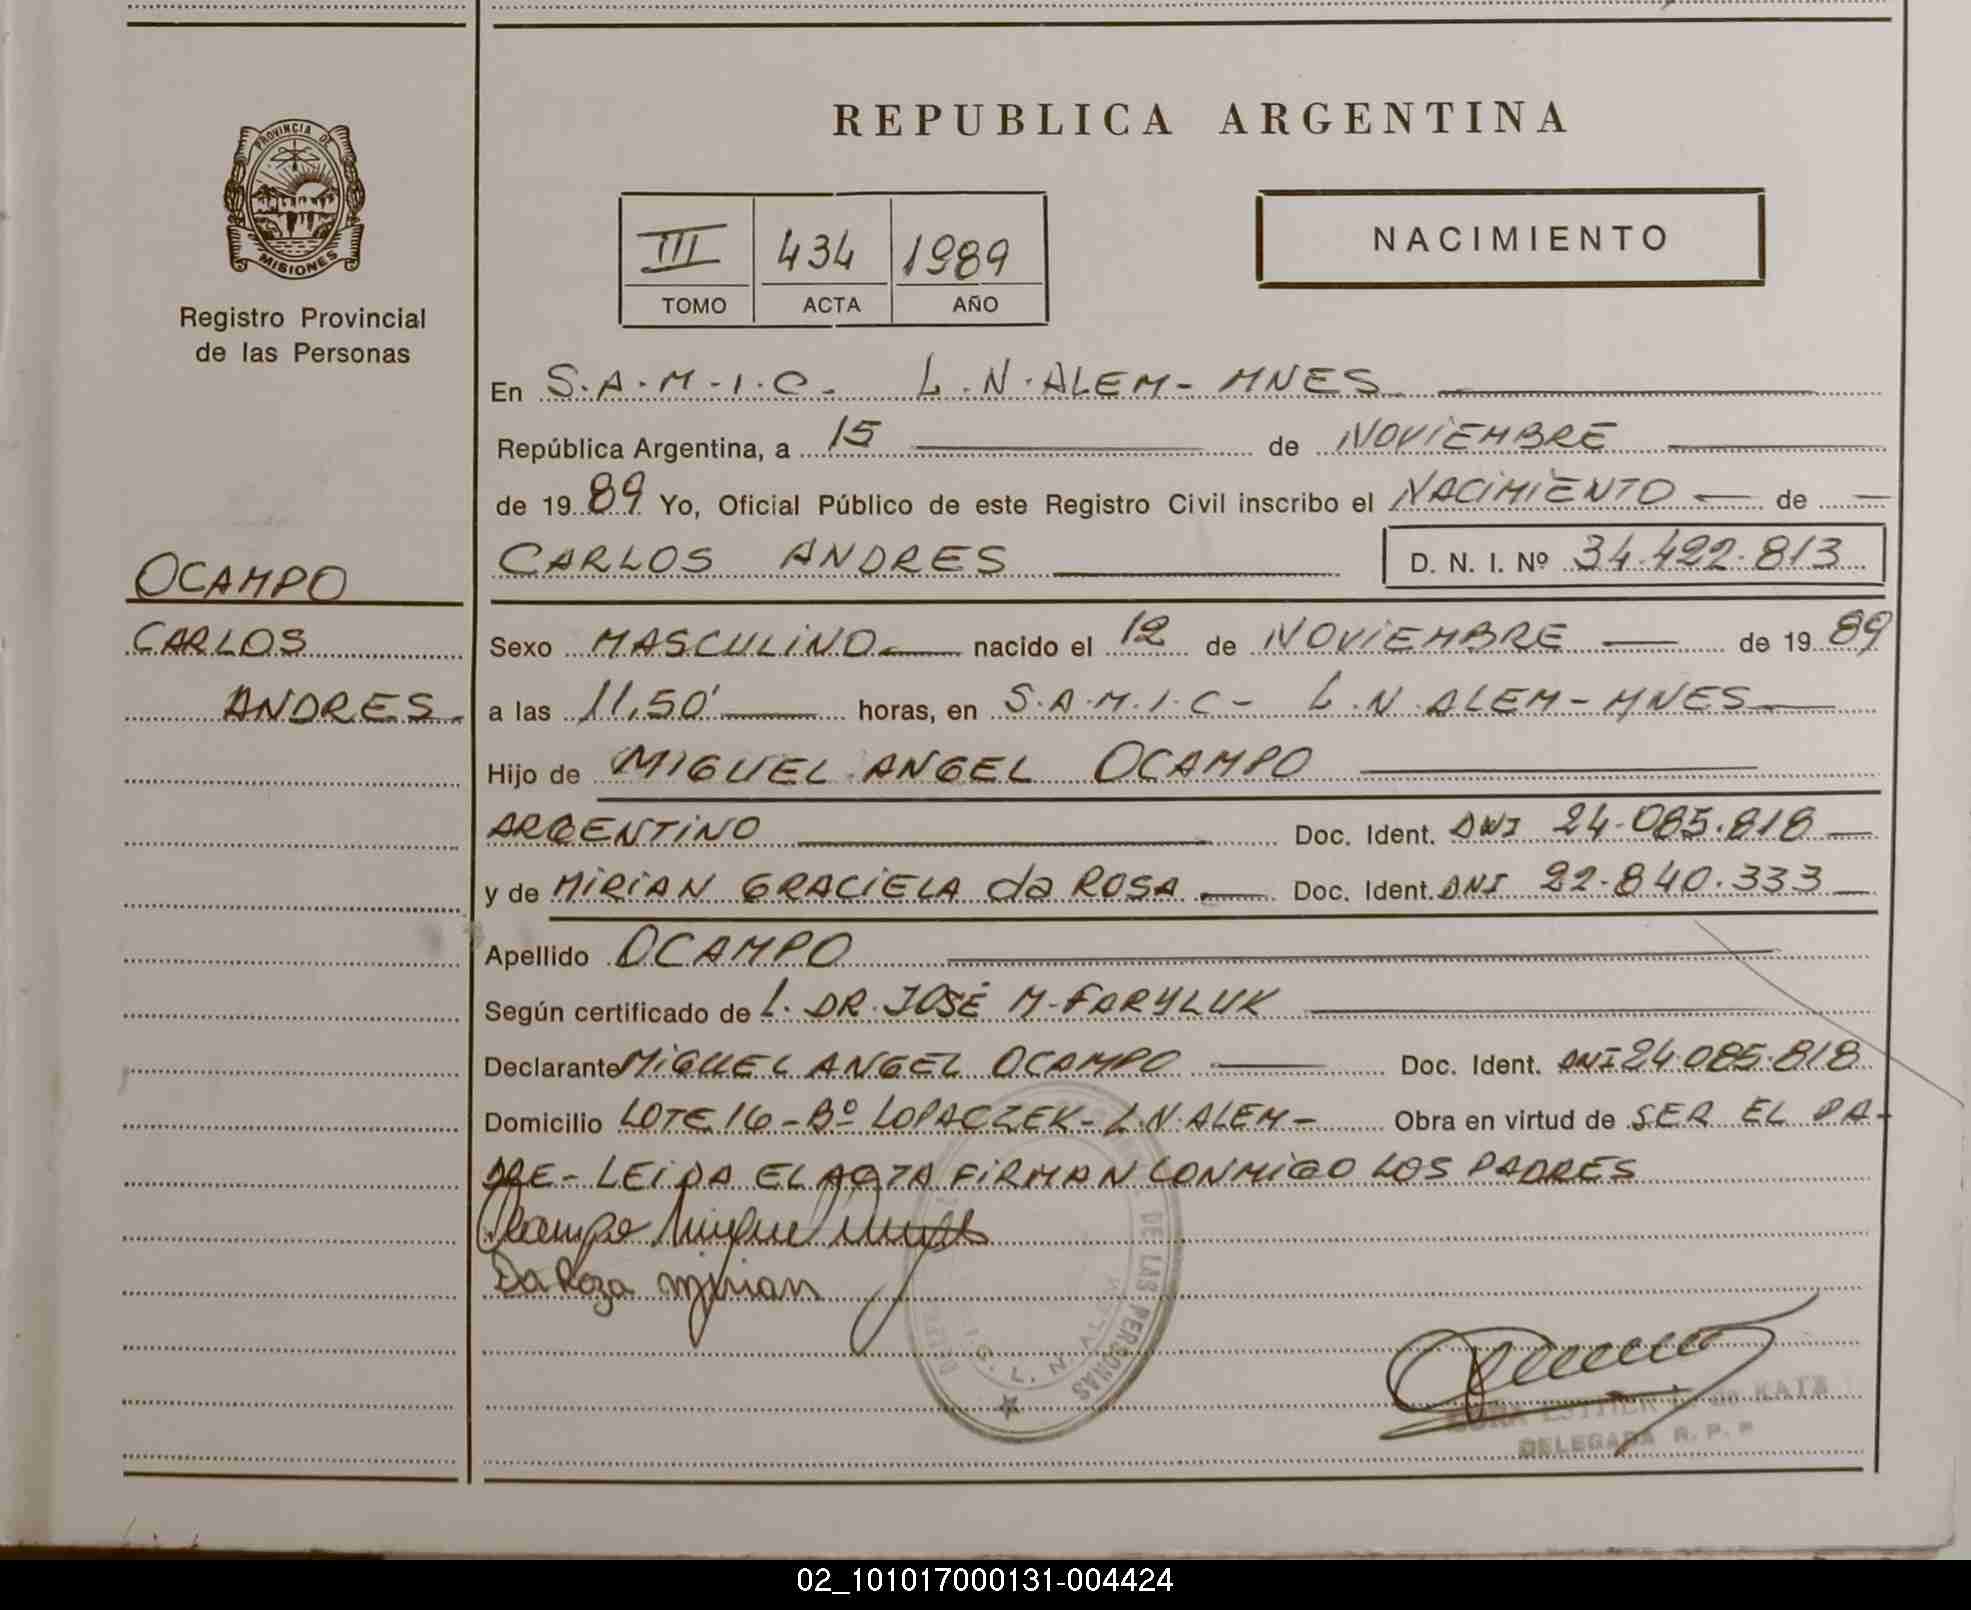 REPUBLICA ARGENTINA
PROVINCIA DE
MISIONES
Registro Provincial
de las Personas
III 434 1989
TOMO ACTA AÑO
NACIMIENTO
En S.A.M.I.C- L.N.ALEM- MNES
República Argentina, a 15 de NOVIEMBRE
de 1989 Yo, Oficial Público de este Registro Civil inscribo el NACIMIENTO de
CARLOS ANDRES D. N. I. Nº 34.422.813
OCAMPO
CARLOS
ANDRES
Sexo MASCULINO nacido el 12 de NOVIEMBRE de 1989
a las 11,50' horas, en S.A.M.I.C- L.N.ALEM-MNES
Hijo de MIGUEL ANGEL OCAMPO
ARGENTINO Doc. Ident. DNI 24.085.818
y de MIRIAN GRACIELA da ROSA Doc. Ident. DNI 22.840.333
Apellido OCAMPO
Según certificado de L. DR. JOSÉ M. FARYLUK
Declarante MIGUEL ANGEL OCAMPO Doc. Ident. DNI 24.085.818
Domicilio LOTE 16-Bº LOPACZEK-L.N.ALEM- Obra en virtud de SER EL PA-
DRE- LEIDA EL ACTA FIRMAN CONMIGO LOS PADRES
Ocampo Miguel
Da Roza Mirian
DE LAS PERSONAS
L. N. ALEM
ESTHER de KATZ
DELEGADA R. P. P
02_101017000131-004424